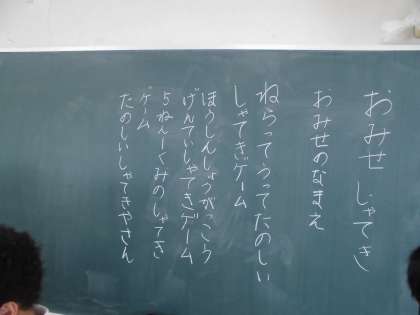 おみせ しゃてき
おみせのなまえ
ねらってうってたのしい
しゃてきゲーム
ほうしんしょうがっこう
げんていしゃてきゲーム
5ねん一くみのしゃてき
ゲーム
たのしいしゃてきやさん